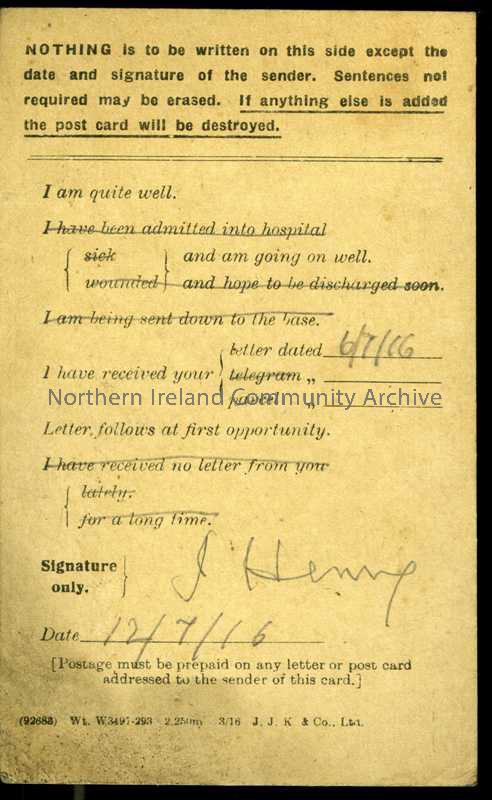 NOTHING is to be written on this side except the
date and signature of the sender. Sentences not
required may be erased. If anything else is added
the post card will be destroyed.
I am quite well.
I have been admitted into hospital
sick and am going on well.
wounded and hope to be discharged soon.
I am being sent down to the base.
letter dated 6/7/16
I have received your telegram „
parcel „
Northern Ireland Community Archive
Letter follows at first opportunity.
I have received no letter from you
lately.
for a long time.
Signature only. J Henry
Date 12/7/16
[Postage must be prepaid on any letter or post card
addressed to the sender of this card.]
(92683) Wt. W3497-293 2,250m 3/16 J. J. K & Co., Ltd.